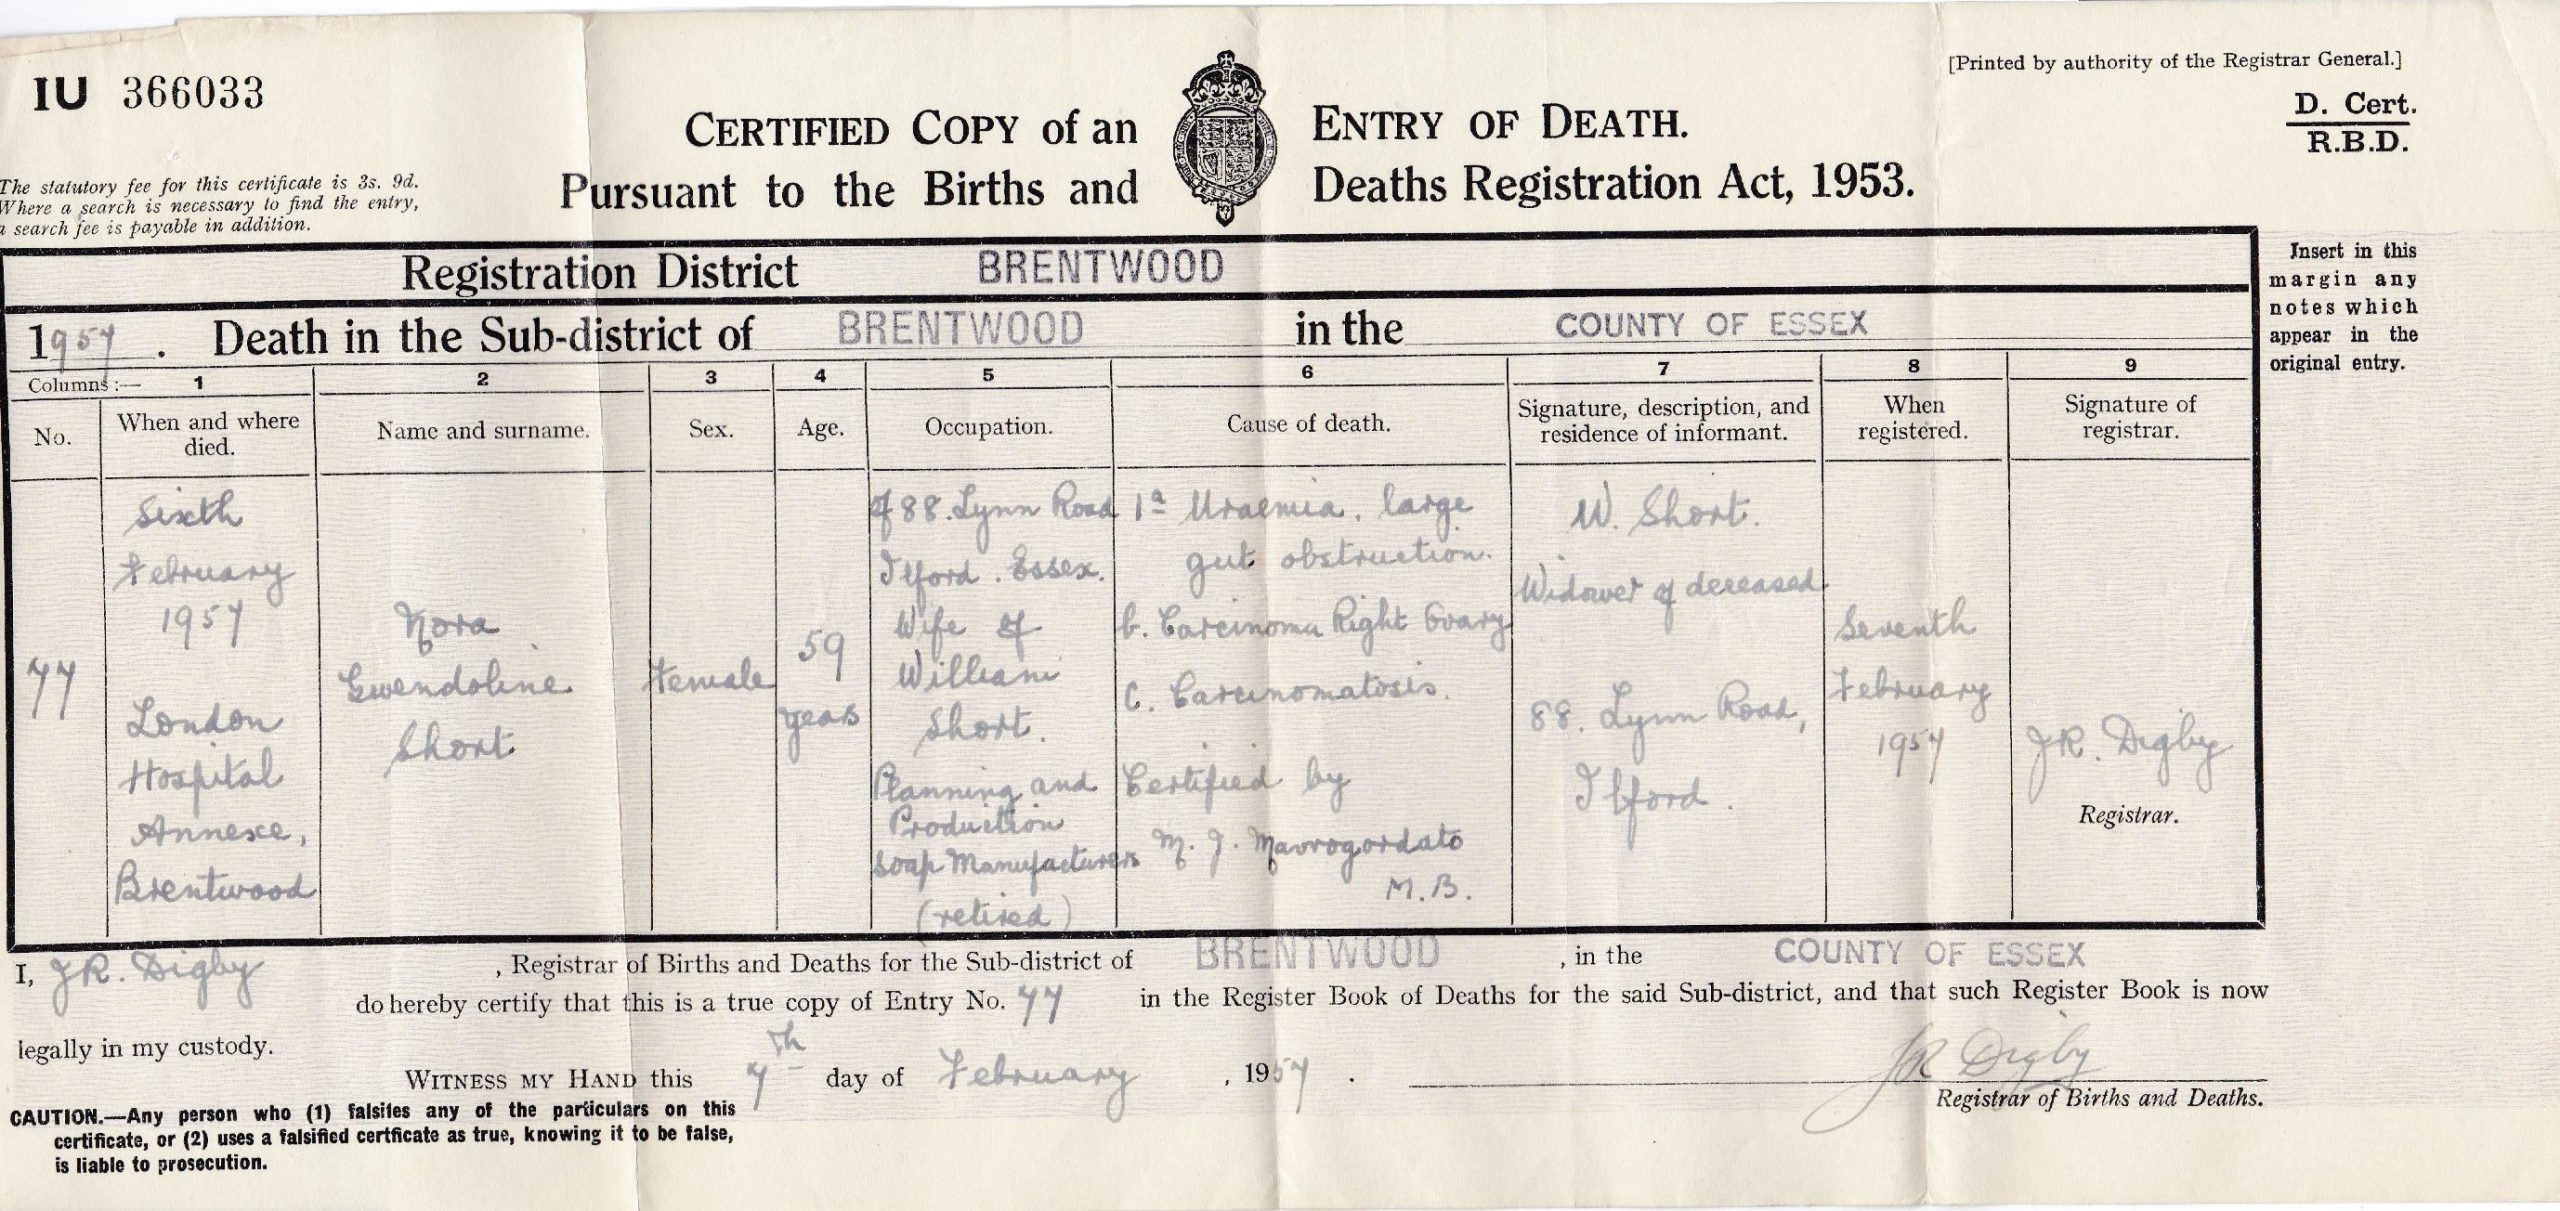 IU 366033
[Printed by authority of the Registrar General.]
D. Cert.
R.B.D.
CERTIFIED COPY of an ENTRY OF DEATH.
Pursuant to the Births and Deaths Registration Act, 1953.
The statutory fee for this certificate is 3s. 9d.
Where a search is necessary to find the entry,
a search fee is payable in addition.
Registration District BRENTWOOD
Insert in this
margin any
notes which
appear in the
original entry.
1957. Death in the Sub-district of BRENTWOOD in the COUNTY OF ESSEX
Columns:— 1 2 3 4 5 6 7 8 9
No.
When and where
died.
Name and surname.
Sex.
Age.
Occupation.
Cause of death.
Signature, description, and
residence of informant.
When
registered.
Signature of
registrar.
77
Sixth
February
1957
London
Hospital
Annexe,
Brentwood
Nora
Gwendoline
Short
Female
59
years
of 88. Lynn Road
Ilford. Essex.
Wife of
William
Short.
Planning and
Production
Soap Manufacturers
(retired)
1a Uraemia. large
gut obstruction.
b. Carcinoma Right Ovary
c. Carcinomatosis.
Certified by
M. J. Mavrogordato
M.B.
W. Short.
Widower of deceased
88. Lynn Road,
Ilford.
Seventh
February
1957
JR. Digby
Registrar.
I, JR. Digby, Registrar of Births and Deaths for the Sub-district of BRENTWOOD, in the COUNTY OF ESSEX
do hereby certify that this is a true copy of Entry No. 77 in the Register Book of Deaths for the said Sub-district, and that such Register Book is now
legally in my custody.
WITNESS MY HAND this 7th day of February, 1957.
JR Digby
Registrar of Births and Deaths.
CAUTION.—Any person who (1) falsifies any of the particulars on this
certificate, or (2) uses a falsified certficate as true, knowing it to be false,
is liable to prosecution.